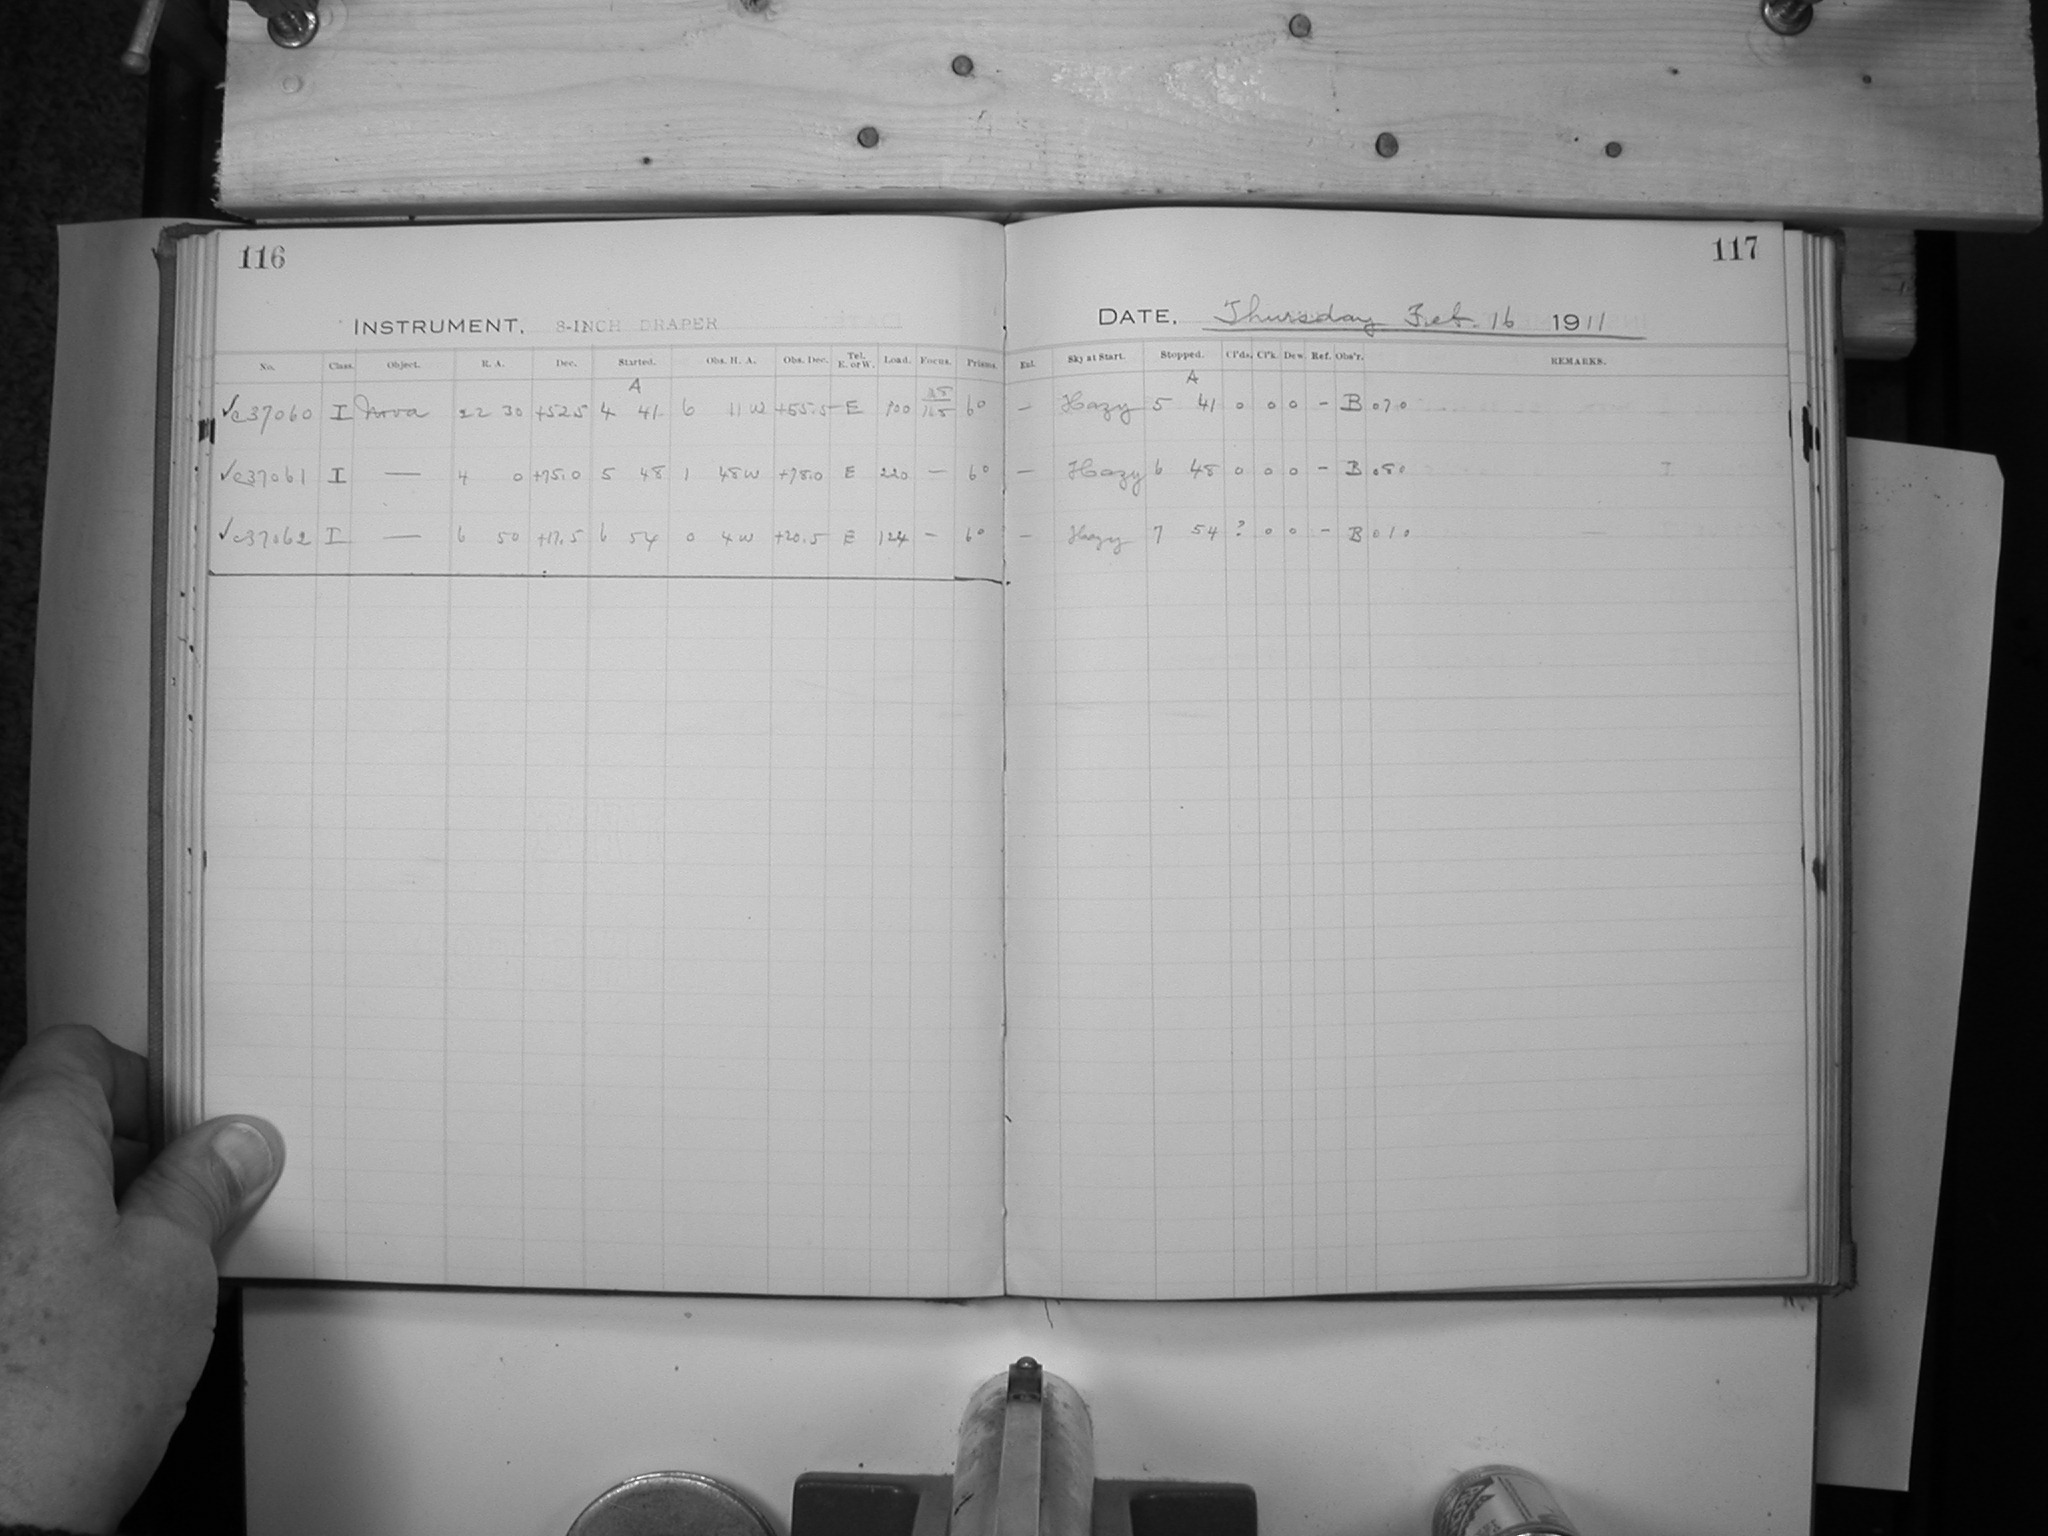 116
INSTRUMENT. 8-INCH DRAPER
No. Class. Object. R. A. Dec. Started. Obs. H. A. Obs. Dec. Tel. E. or W. Load. Focus. Prisms.
A
✓c37060 I Nova 22 30 +52.5 4 41 6 11 W +55.5 E 100 60
✓c37061 I — 4 0 +75.0 5 48 1 48 W +78.0 E 220 — 60
✓c37062 I — 6 50 +17.5 6 54 0 4 W +20.5 E 124 — 60
117
DATE. Thursday Feb. 16 1911
Ext. Sky at Start. Stopped. Cl'ds. Cl'k. Dew. Ref. Obs'r. REMARKS.
A
— Hazy 5 41 0 0 0 – B 070
— Hazy 6 48 0 0 0 – B 080
— Hazy 7 54 ? 0 0 – B 010